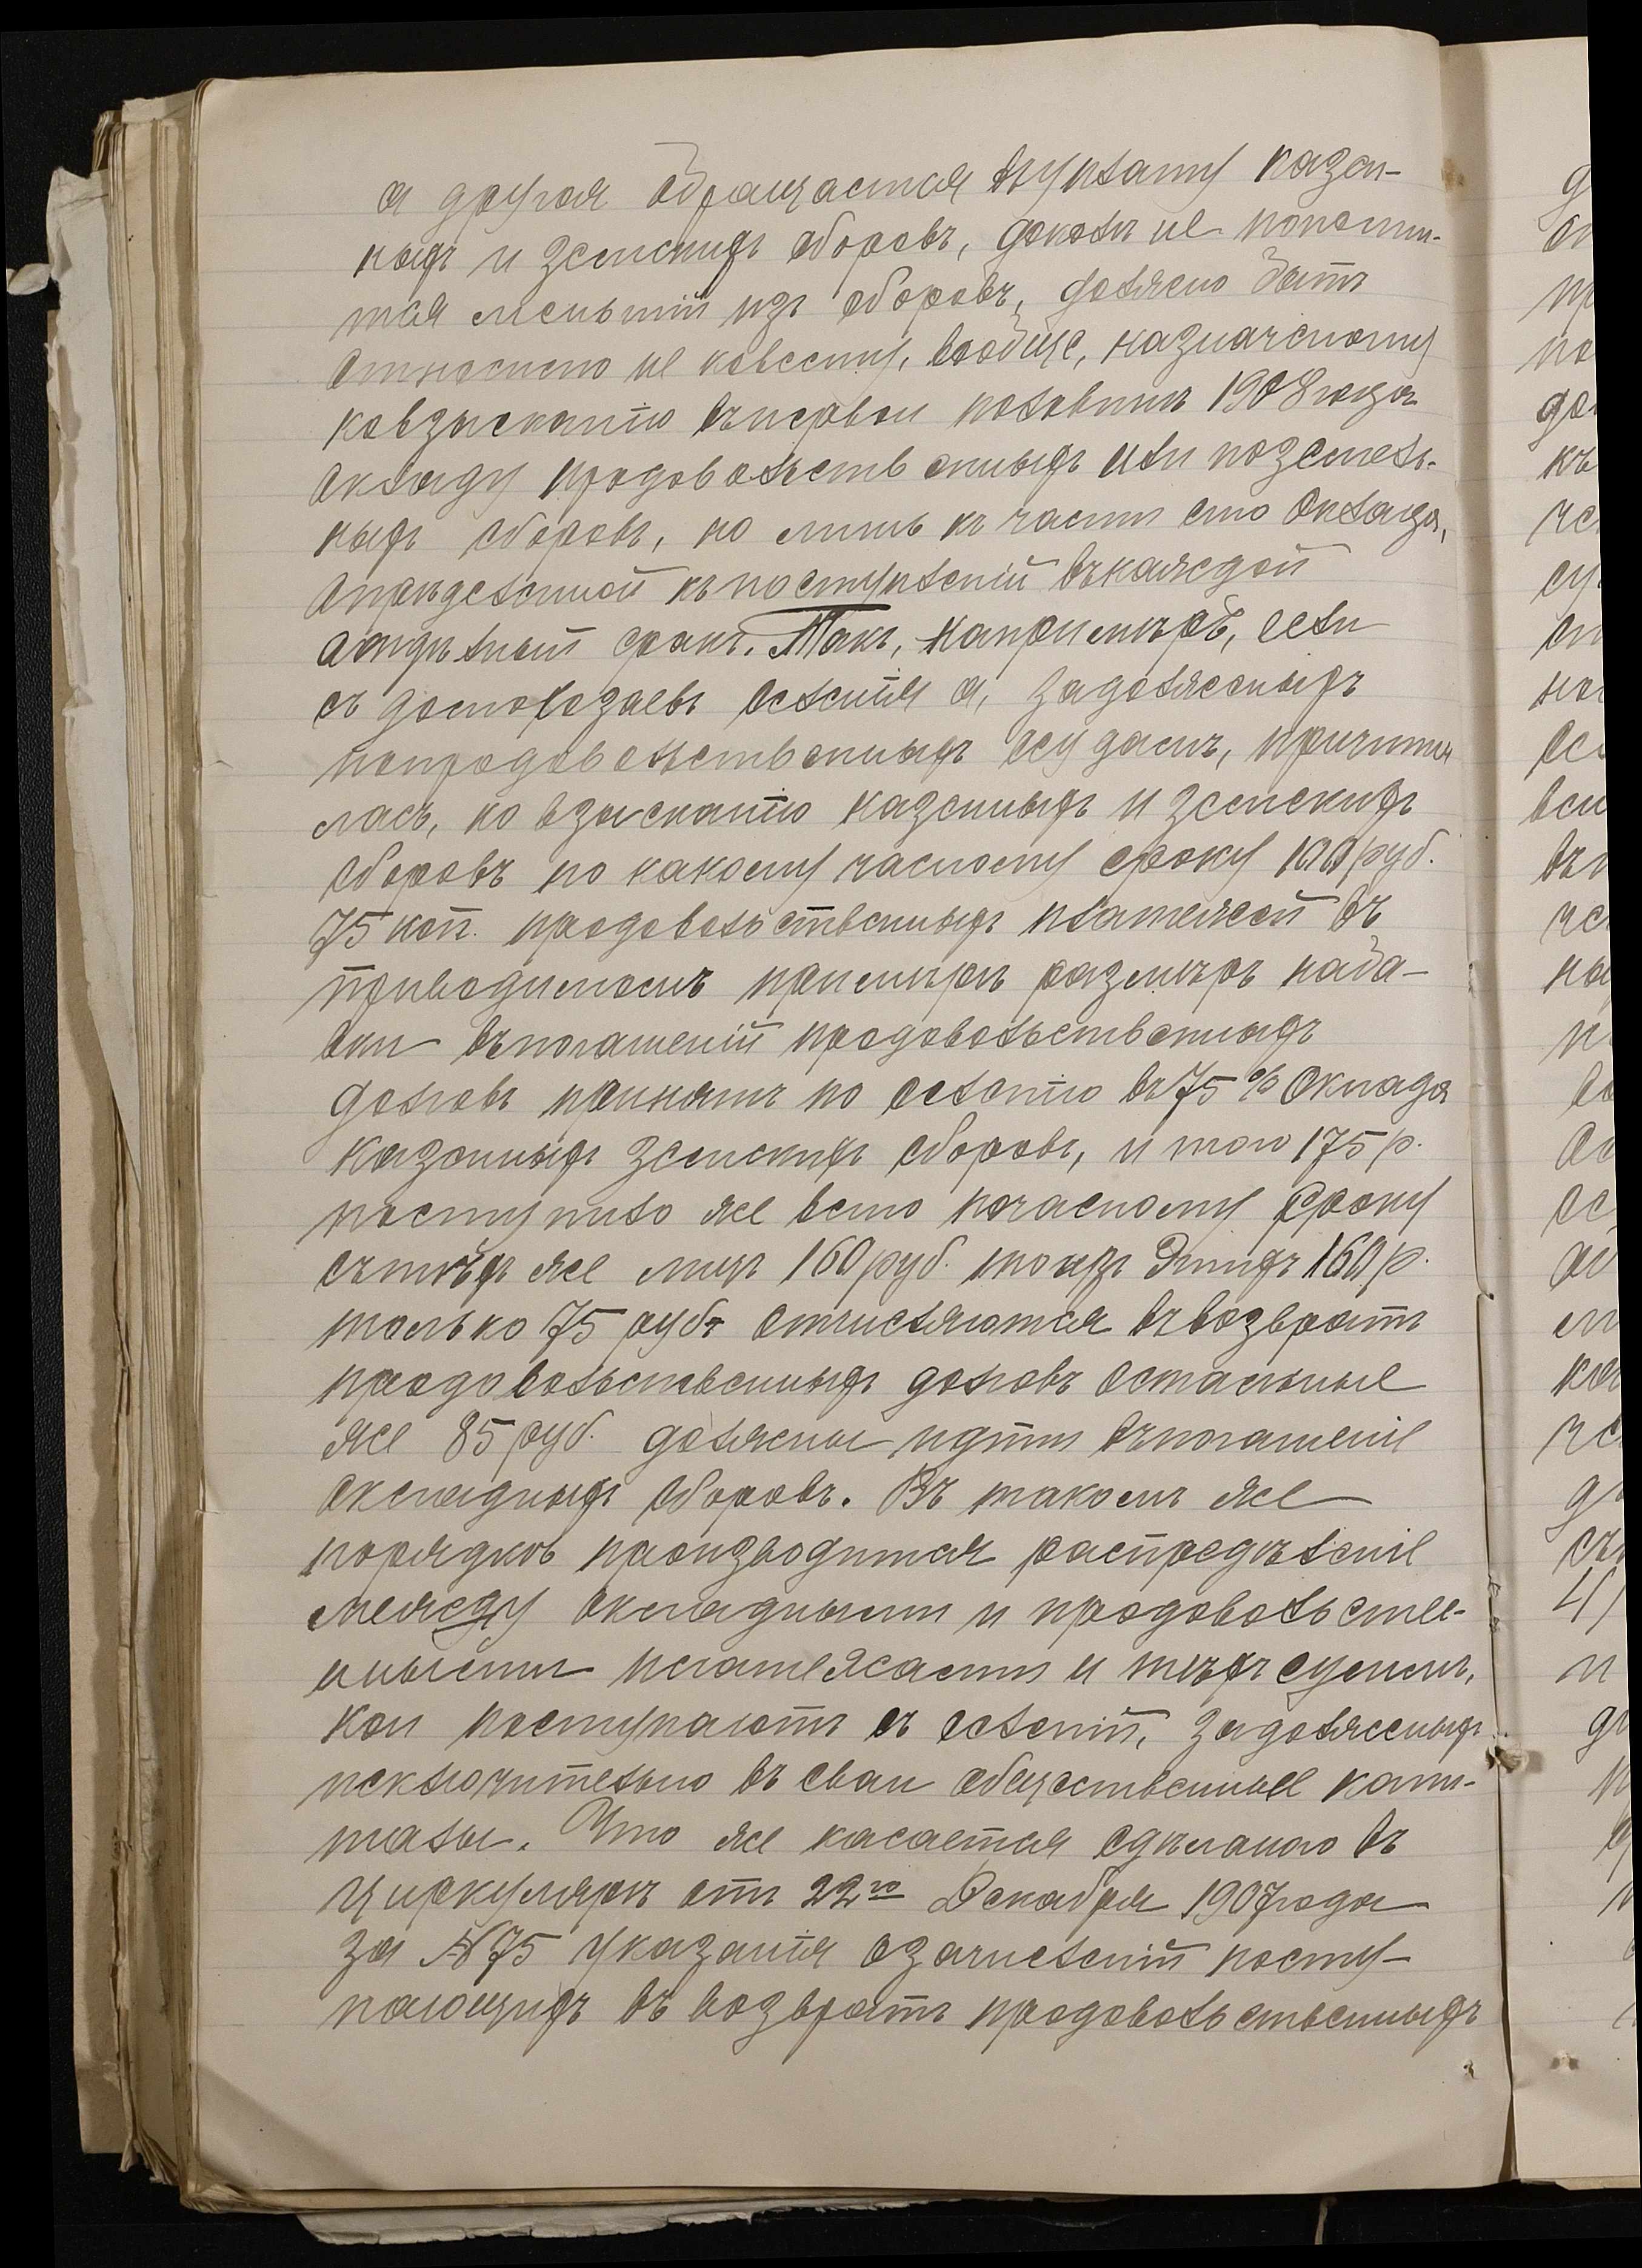 а другая обращается въуплату казен-
ныхъ и земскихъ сборовъ, доколѣ не пополни-
тся меньшій изъ сборовъ, должно быть
относимо не ковсему, вообще, назначеному
ковзысканію въпервой половинѣ 1908 года
окладу продовольственныхъ или поземель-
ныхъ сборовъ, но лишь къ части сто оклада,
опредѣленной къ поступленій въкаждой
отдѣльный срокъ. Такъ, напримѣръ, если
съ домохозаевъ селенія а, задолженыхъ
попродовольственымъ ссудамъ, причита
лась, ко взысканію казеныхъ и земскихъ
сборовъ по какому часному сроку 100 руб.
75 коп. продовольственыхъ платежей въ
приводимомъ примѣрѣ размѣръ надба-
вки въпогашеній продовольственыхъ
долговъ принятъ по селенію въ 75 % оклада
казеныхъ земскихъ сборовъ, итого 175 р.
поступило же всего почасному сроку
сътѣхъ же лицъ 160 руб. тоизъ этихъ 160 р.
только 75 руб. отчисляются въвозвратъ
продовольственыхъ долговъ остальные
же 85 руб. должены идти въпогашеніе
окладныхъ сборовъ. Въ такомъ же
порядкѣ производится распредѣленіе
между окладными и продовольстве-
нными платежами и тѣхъ суммъ,
кои поступаютъ съ селеній, задолженыхъ
исключительно въ свои общественные капи-
талы. Что же касается сдѣланого въ
циркулярѣ отъ 22го Декабря 1907 года
за № 75 указанія озачисленій посту-
пающихъ въ возвратъ продовольственыхъ
д